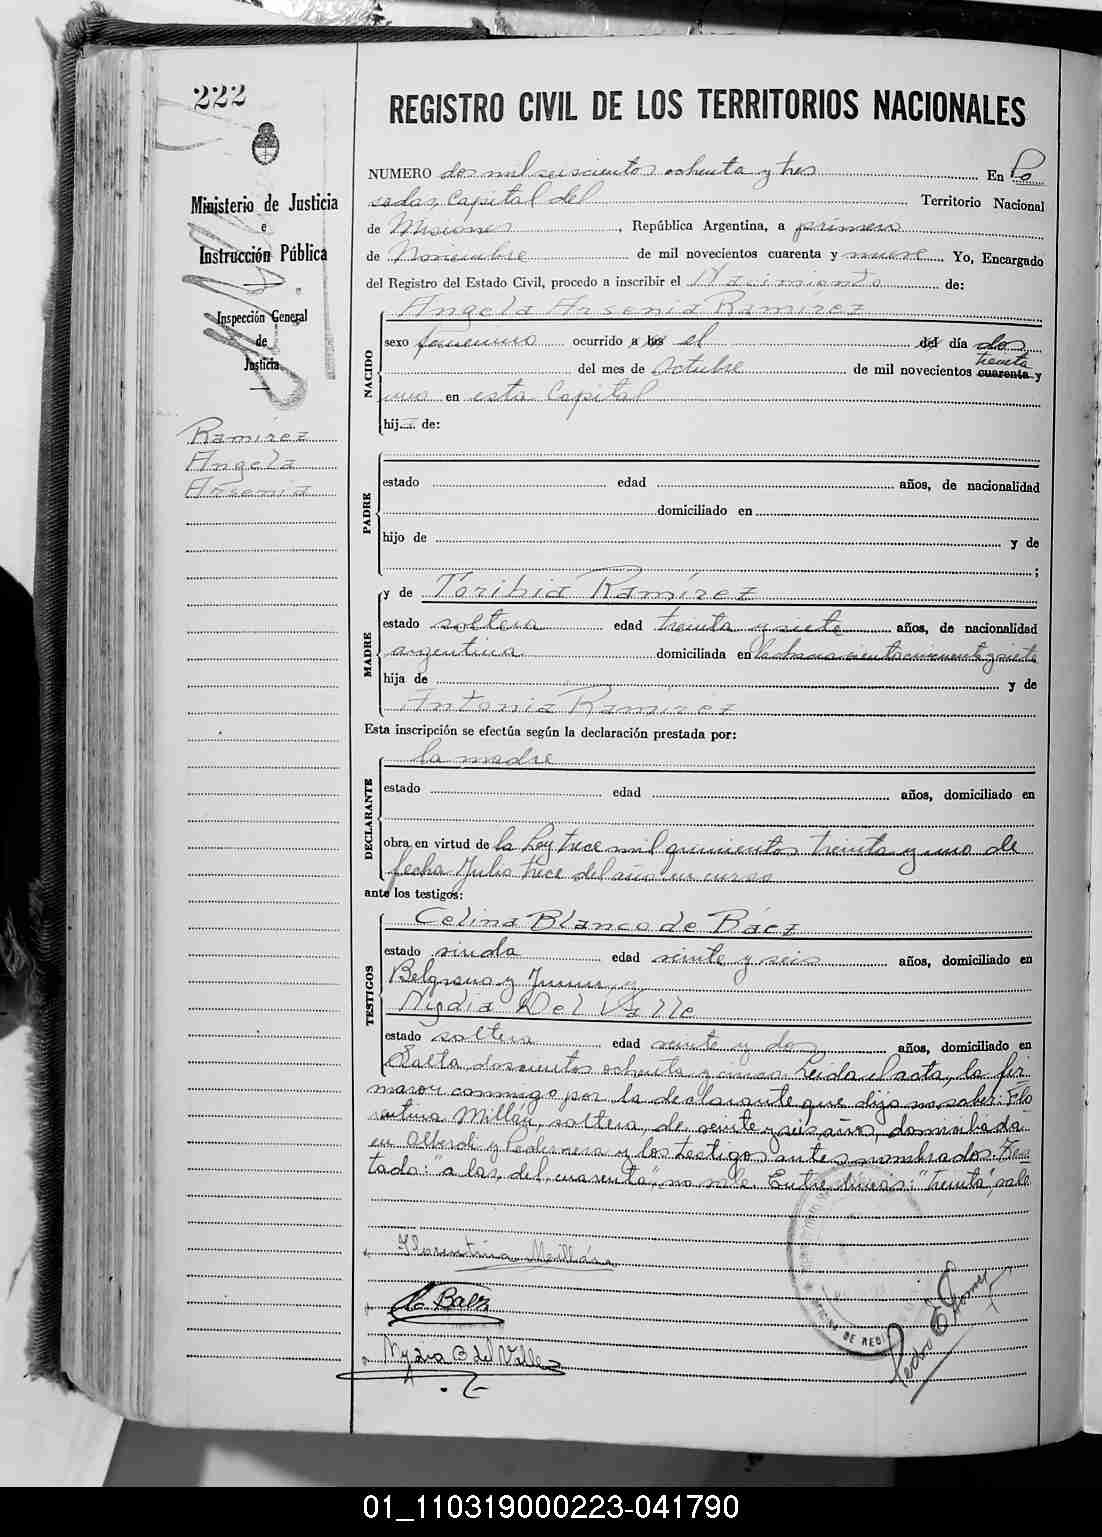 222
REGISTRO CIVIL DE LOS TERRITORIOS NACIONALES
Ministerio de Justicia
e
Instrucción Pública
Inspección General
de
Justicia
Ramírez
Angela
Arsenia
NUMERO dos mil seiscientos ochenta y tres En Po
sadas, Capital del Territorio Nacional
de Misiones, República Argentina, a primero
de Noviembre de mil novecientos cuarenta y nueve Yo, Encargado
del Registro del Estado Civil, procedo a inscribir el Nacimiento de:
NACIDO
Angela Arsenia Ramírez
sexo femenino ocurrido a las el del día dos
treinta
del mes de Octubre de mil novecientos cuarenta y
uno en esta Capital
hij de:
PADRE
estado edad años, de nacionalidad
domiciliado en
hijo de y de
;
MADRE
y de Toribia Ramírez
estado soltera edad treinta y siete años, de nacionalidad
argentina domiciliada en ciento cincuenta y siete
hija de y de
Antonia Ramírez
Esta inscripción se efectúa según la declaración prestada por:
DECLARANTE
la madre
estado edad años, domiciliado en
obra en virtud de la Ley trece mil quinientos treinta y uno de
fecha Julio trece del año en curso
ante los testigos:
TESTIGOS
Celina Blanco de Báez
estado viuda edad veinte y seis años, domiciliado en
Belgrano y Junin, y
Nydia Del Valle
estado soltera edad veinte y dos años, domiciliado en
Salta doscientos ochenta y cinco. Leída el acta, la fir
maron conmigo por la declarante que dijo no saber: Flo
rentina Millán, soltera, de veinte y seis años, domiciliada
en Alberdi y Pedernera y los testigos antes nombrados. Tes
tado: "a las, del, cuarenta", no vale. Entre líneas: "treinta", vale
Florentina Meillán
C Baez
Nydia B del Valle
Pedro E Gomez
OFICINA DE REGI
01_110319000223-041790